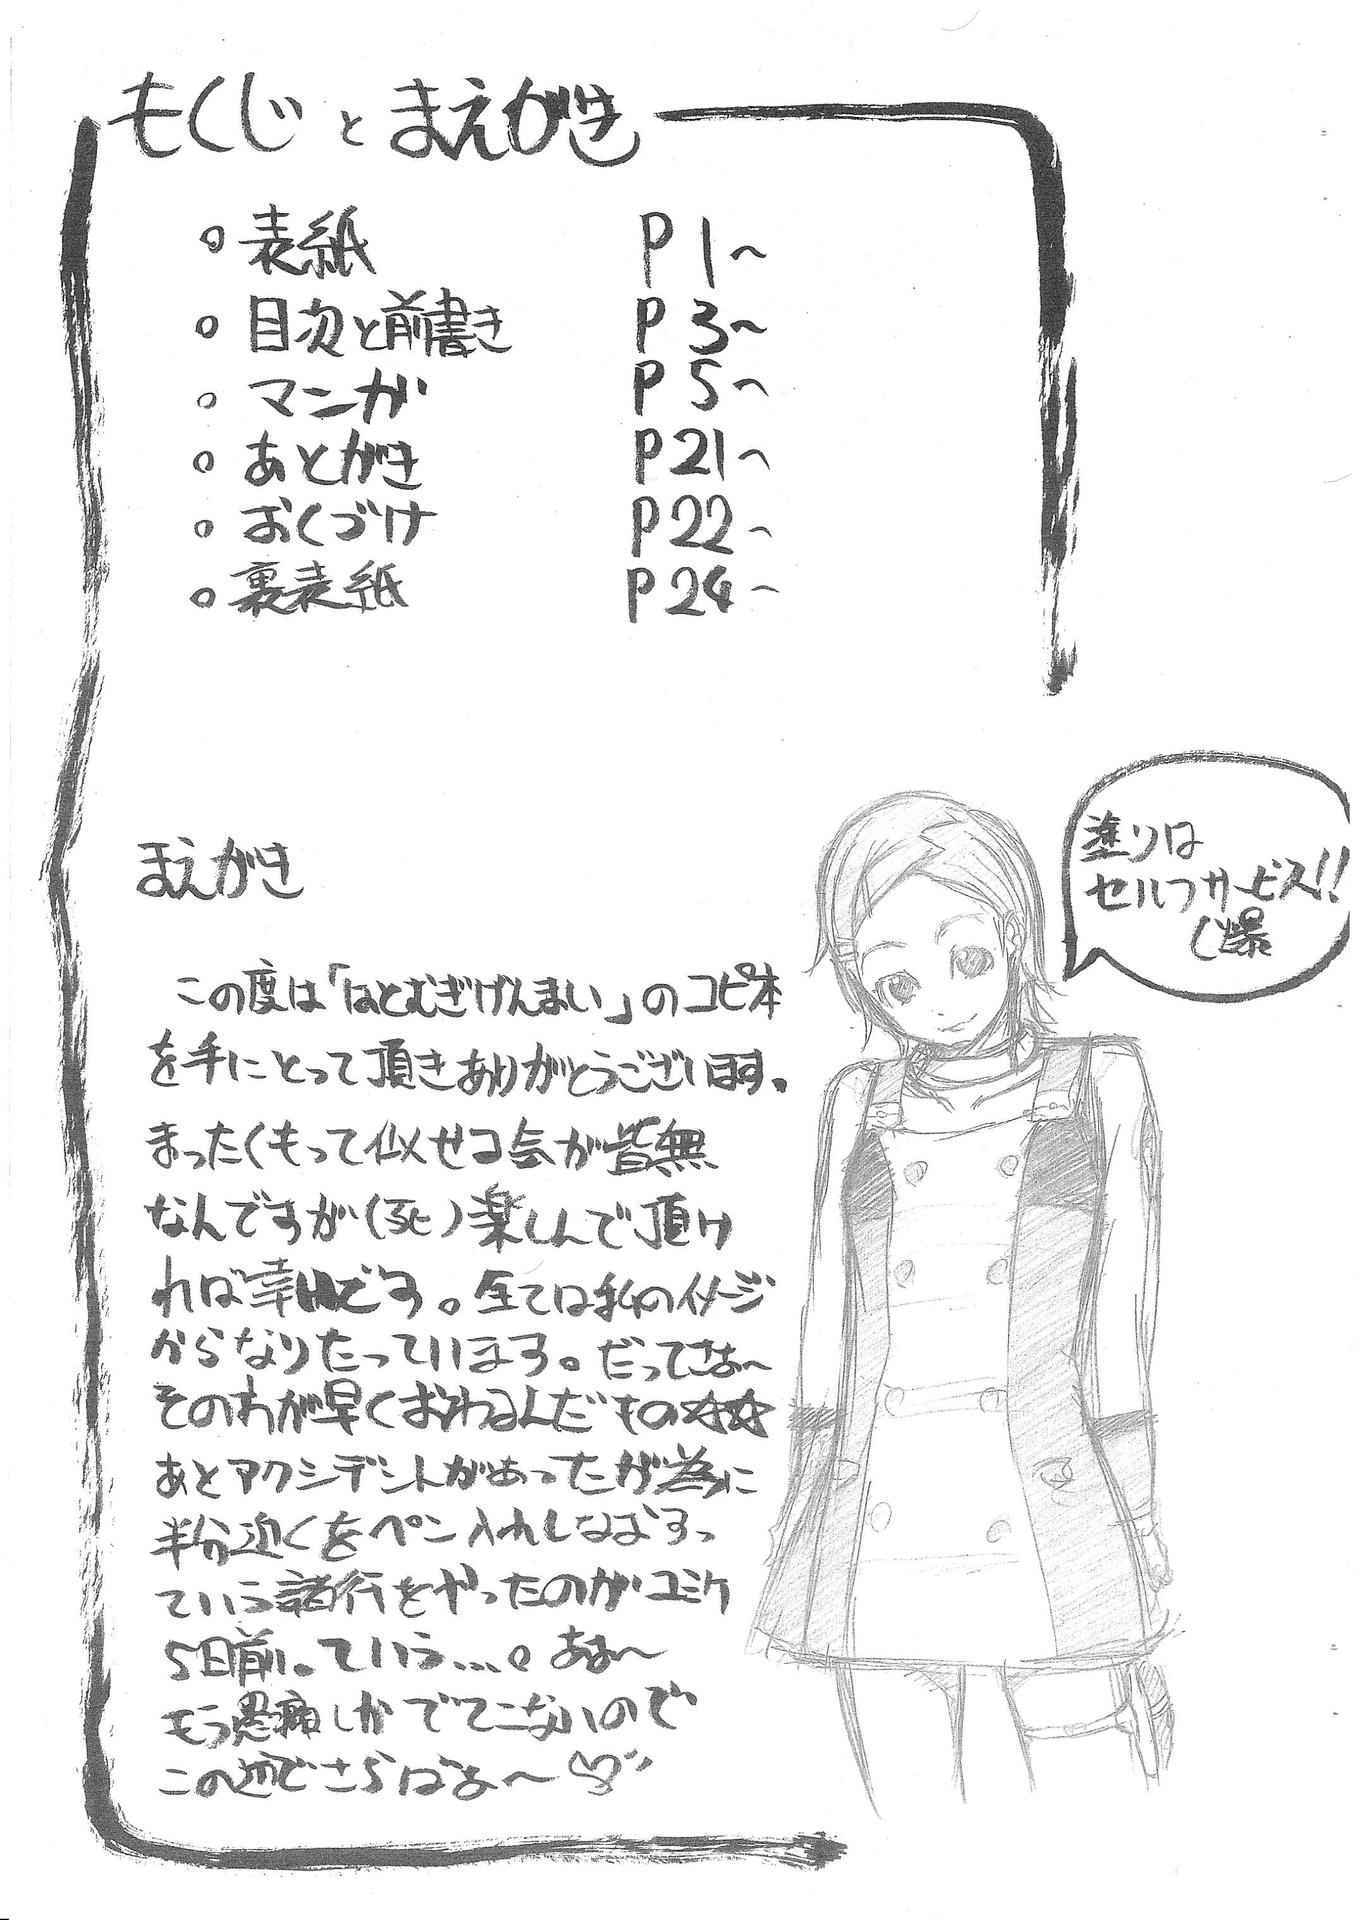 もくじ と まえがき
○ 表紙 P 1~
○ 目次と前書き P 3~
○ マンガ P 5~
○ あとがき P21~
○ おくづけ P22~
○ 裏表紙 P24~
塗りは
セルフサービス!!
(爆
まえがき
この度は「はとむぎげんまい」のコピ本
を手にとって頂きありがとうございます。
まったくもって似せる会が皆無
なんですが(死)楽しんで頂け
れば幸いです。全ては私のイメージ
からなりたっています。だってさぁ~
そのわが早くおわるんだもの☆☆
あとアクシデントがあったが為に
半分近くをペン入れしなおすっ
ていう諸行をやったのがコミケ
5日前。ていう…。あぁ~
もう愚痴しかでてこないので
この辺でさらばだぁ~